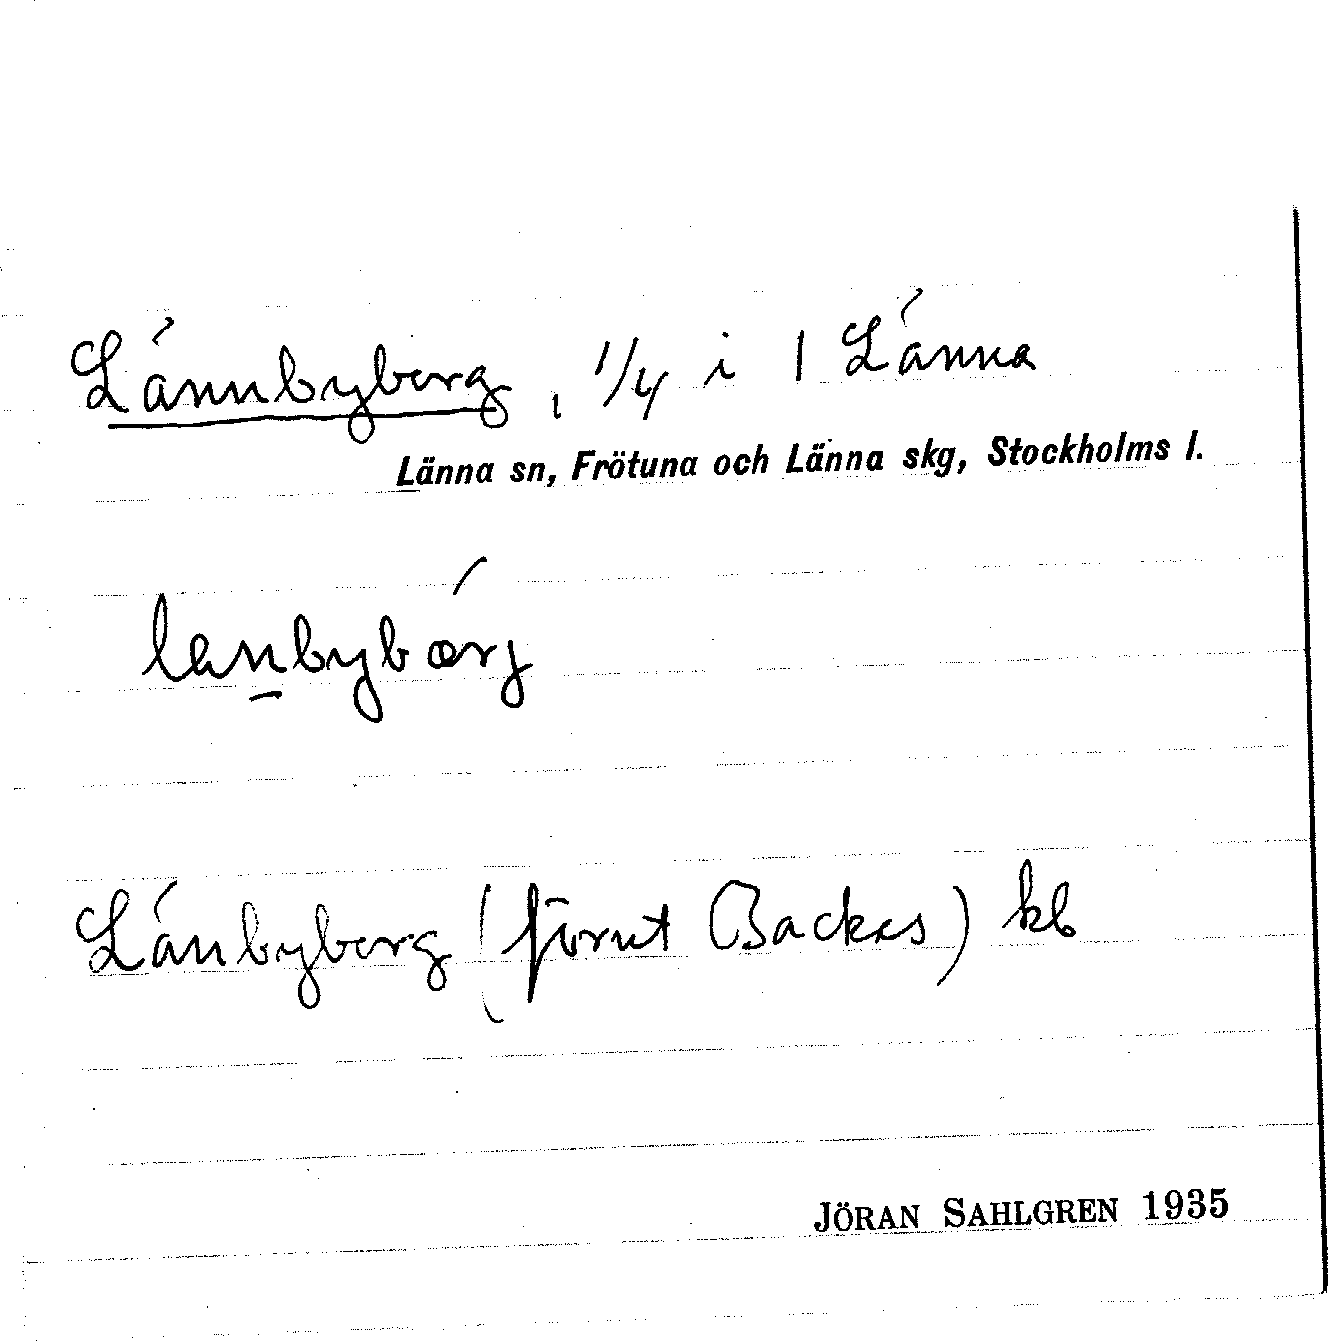 Lännbyberg, 1/4 i 1 Länna
Länna sn, Frötuna och Länna skg, Stockholms l.
lanbybærj
Länbyberg (förut Backas) kb
JÖRAN SAHLGREN 1935